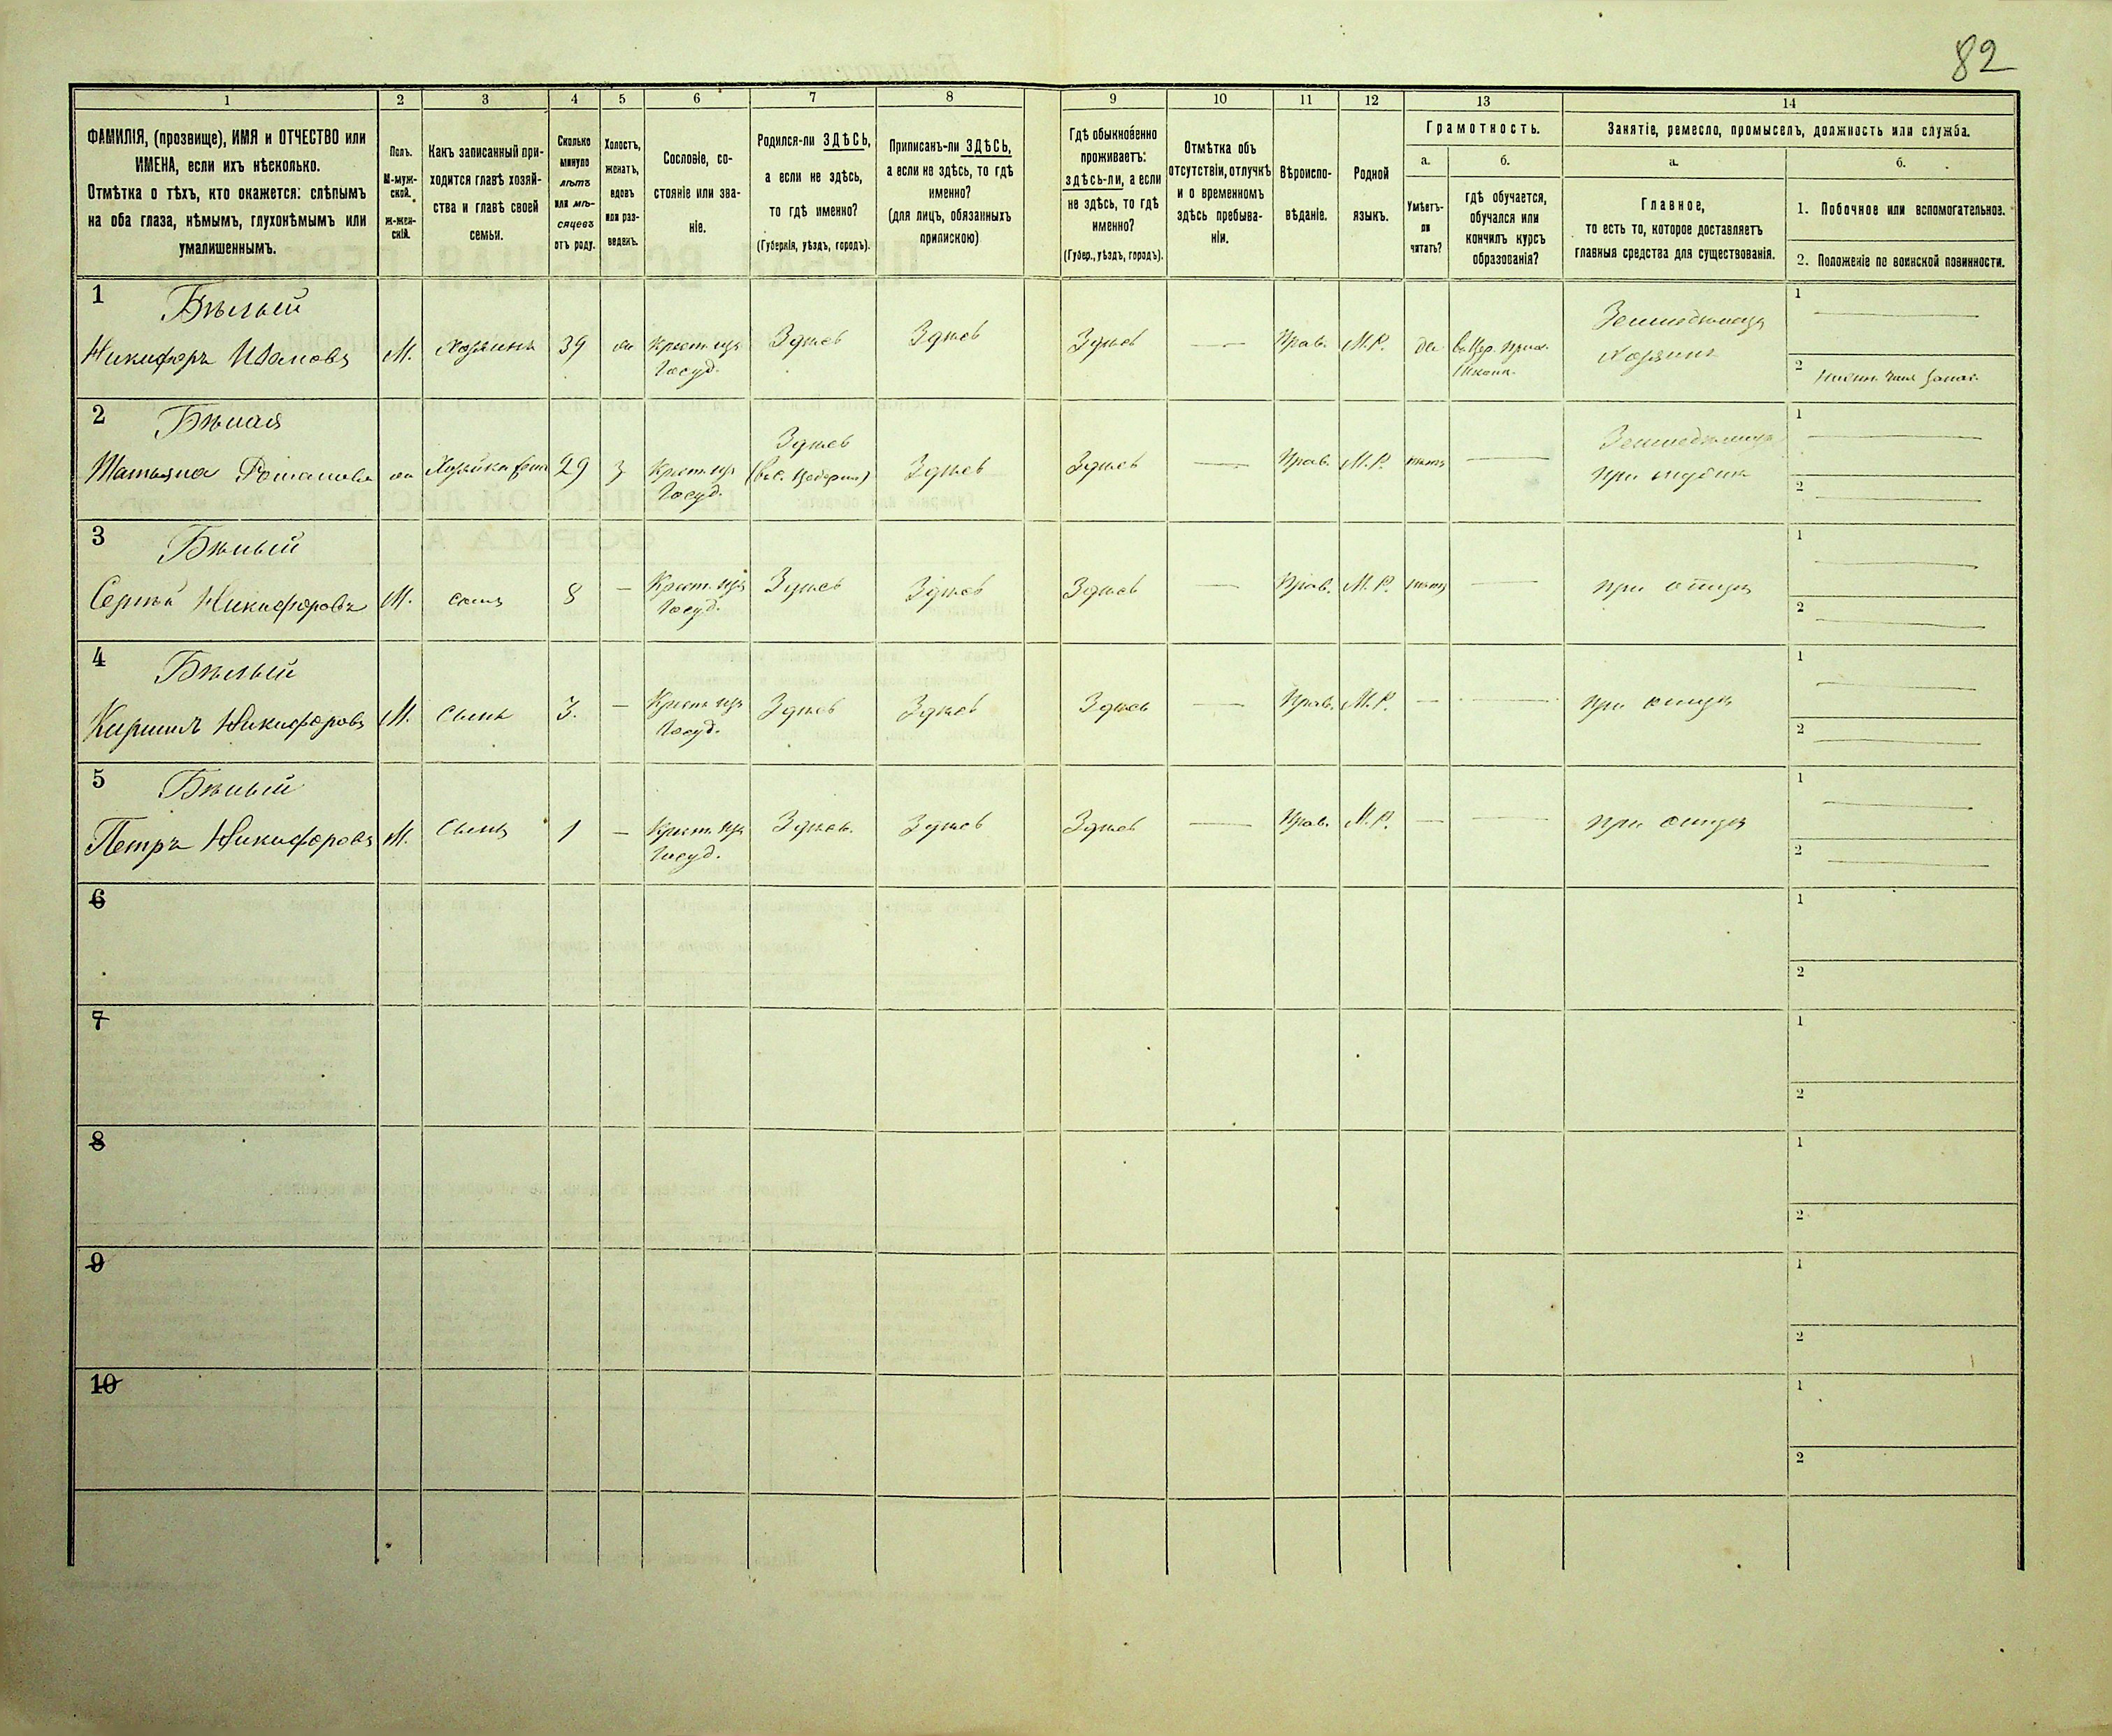 82
1 2 3 4 5 6 7 8 9 10 11 12 13 14
ФАМИЛІЯ, (прозвище), ИМЯ и ОТЧЕСТВО или
ИМЕНА, если ихъ нѣсколько.
Отмѣтка о тѣхъ, кто окажется: слѣпымъ
на оба глаза, нѣмымъ, глухонѣмымъ или
умалишеннымъ.
Полъ.
М-муж-
ской.
ж-жен-
скій.
Какъ записанный при-
ходится главѣ хозяй-
ства и главѣ своей
семьи.
Сколько
минуло
лѣтъ
или мѣ-
сяцевъ
отъ роду.
Холостъ,
женатъ,
вдовъ
или раз-
веденъ.
Сословіе, со-
стояніе или зва-
ніе.
Родился-ли ЗДѢСЬ,
а если не здѣсь,
то гдѣ именно?
(Губернія, уѣздъ, городъ).
Приписанъ-ли ЗДѢСЬ,
а если не здѣсь, то гдѣ
именно?
(для лицъ, обязанныхъ
припискою)
Гдѣ обыкновенно
проживаетъ:
здѣсь-ли, а если
не здѣсь, то гдѣ
именно?
(Губер., уѣздъ, городъ).
Отмѣтка объ
отсутствіи, отлучкѣ
и о временномъ
здѣсь пребыва-
ніи.
Вѣроиспо-
вѣданіе.
Родной
языкъ.
Грамотность.
а.
Умѣетъ-
ли
читать?
б.
гдѣ обучается,
обучался или
кончилъ курсъ
образованія?
Занятіе, ремесло, промыселъ, должность или служба.
а.
Главное,
то есть то, которое доставляетъ
главныя средства для существованія.
б.
1. Побочное или вспомогательное.
2. Положеніе по воинской повинности.
1 Бѣлый
Никифоръ Ивановъ М. Хозяинъ 39 Крест. изъ Здѣсь Здѣсь Здѣсь — Прав. М.Р. да Земледѣлецъ 1 —
Госуд. Хозяинъ 2
2 Бѣлая
Татьяна Романова Хозяйка жена 29 Крест. изъ Здѣсь Здѣсь Здѣсь — Прав. М.Р. нѣтъ — Земледѣлецъ 1 —
Госуд. при мужѣ 2 —
3 Бѣлый
Сергѣй Никифоровъ М. сынъ 8 — Крест. изъ Здѣсь Здѣсь Здѣсь — Прав. М.Р. нѣтъ — при отцѣ 1 —
Госуд. 2 —
4 Бѣлый
Кириллъ Никифоровъ М. Сынъ 3. — Крест. изъ Здѣсь Здѣсь Здѣсь — Прав. М.Р. — — при отцѣ 1 —
Госуд. 2 —
5 Бѣлый
Петръ Никифоровъ М. Сынъ 1 — Крест. изъ Здѣсь. Здѣсь Здѣсь — Прав. М.Р. — — при отцѣ 1 —
Госуд. 2 —
6 1
2
7 1
2
8 1
2
9 1
2
10 1
2